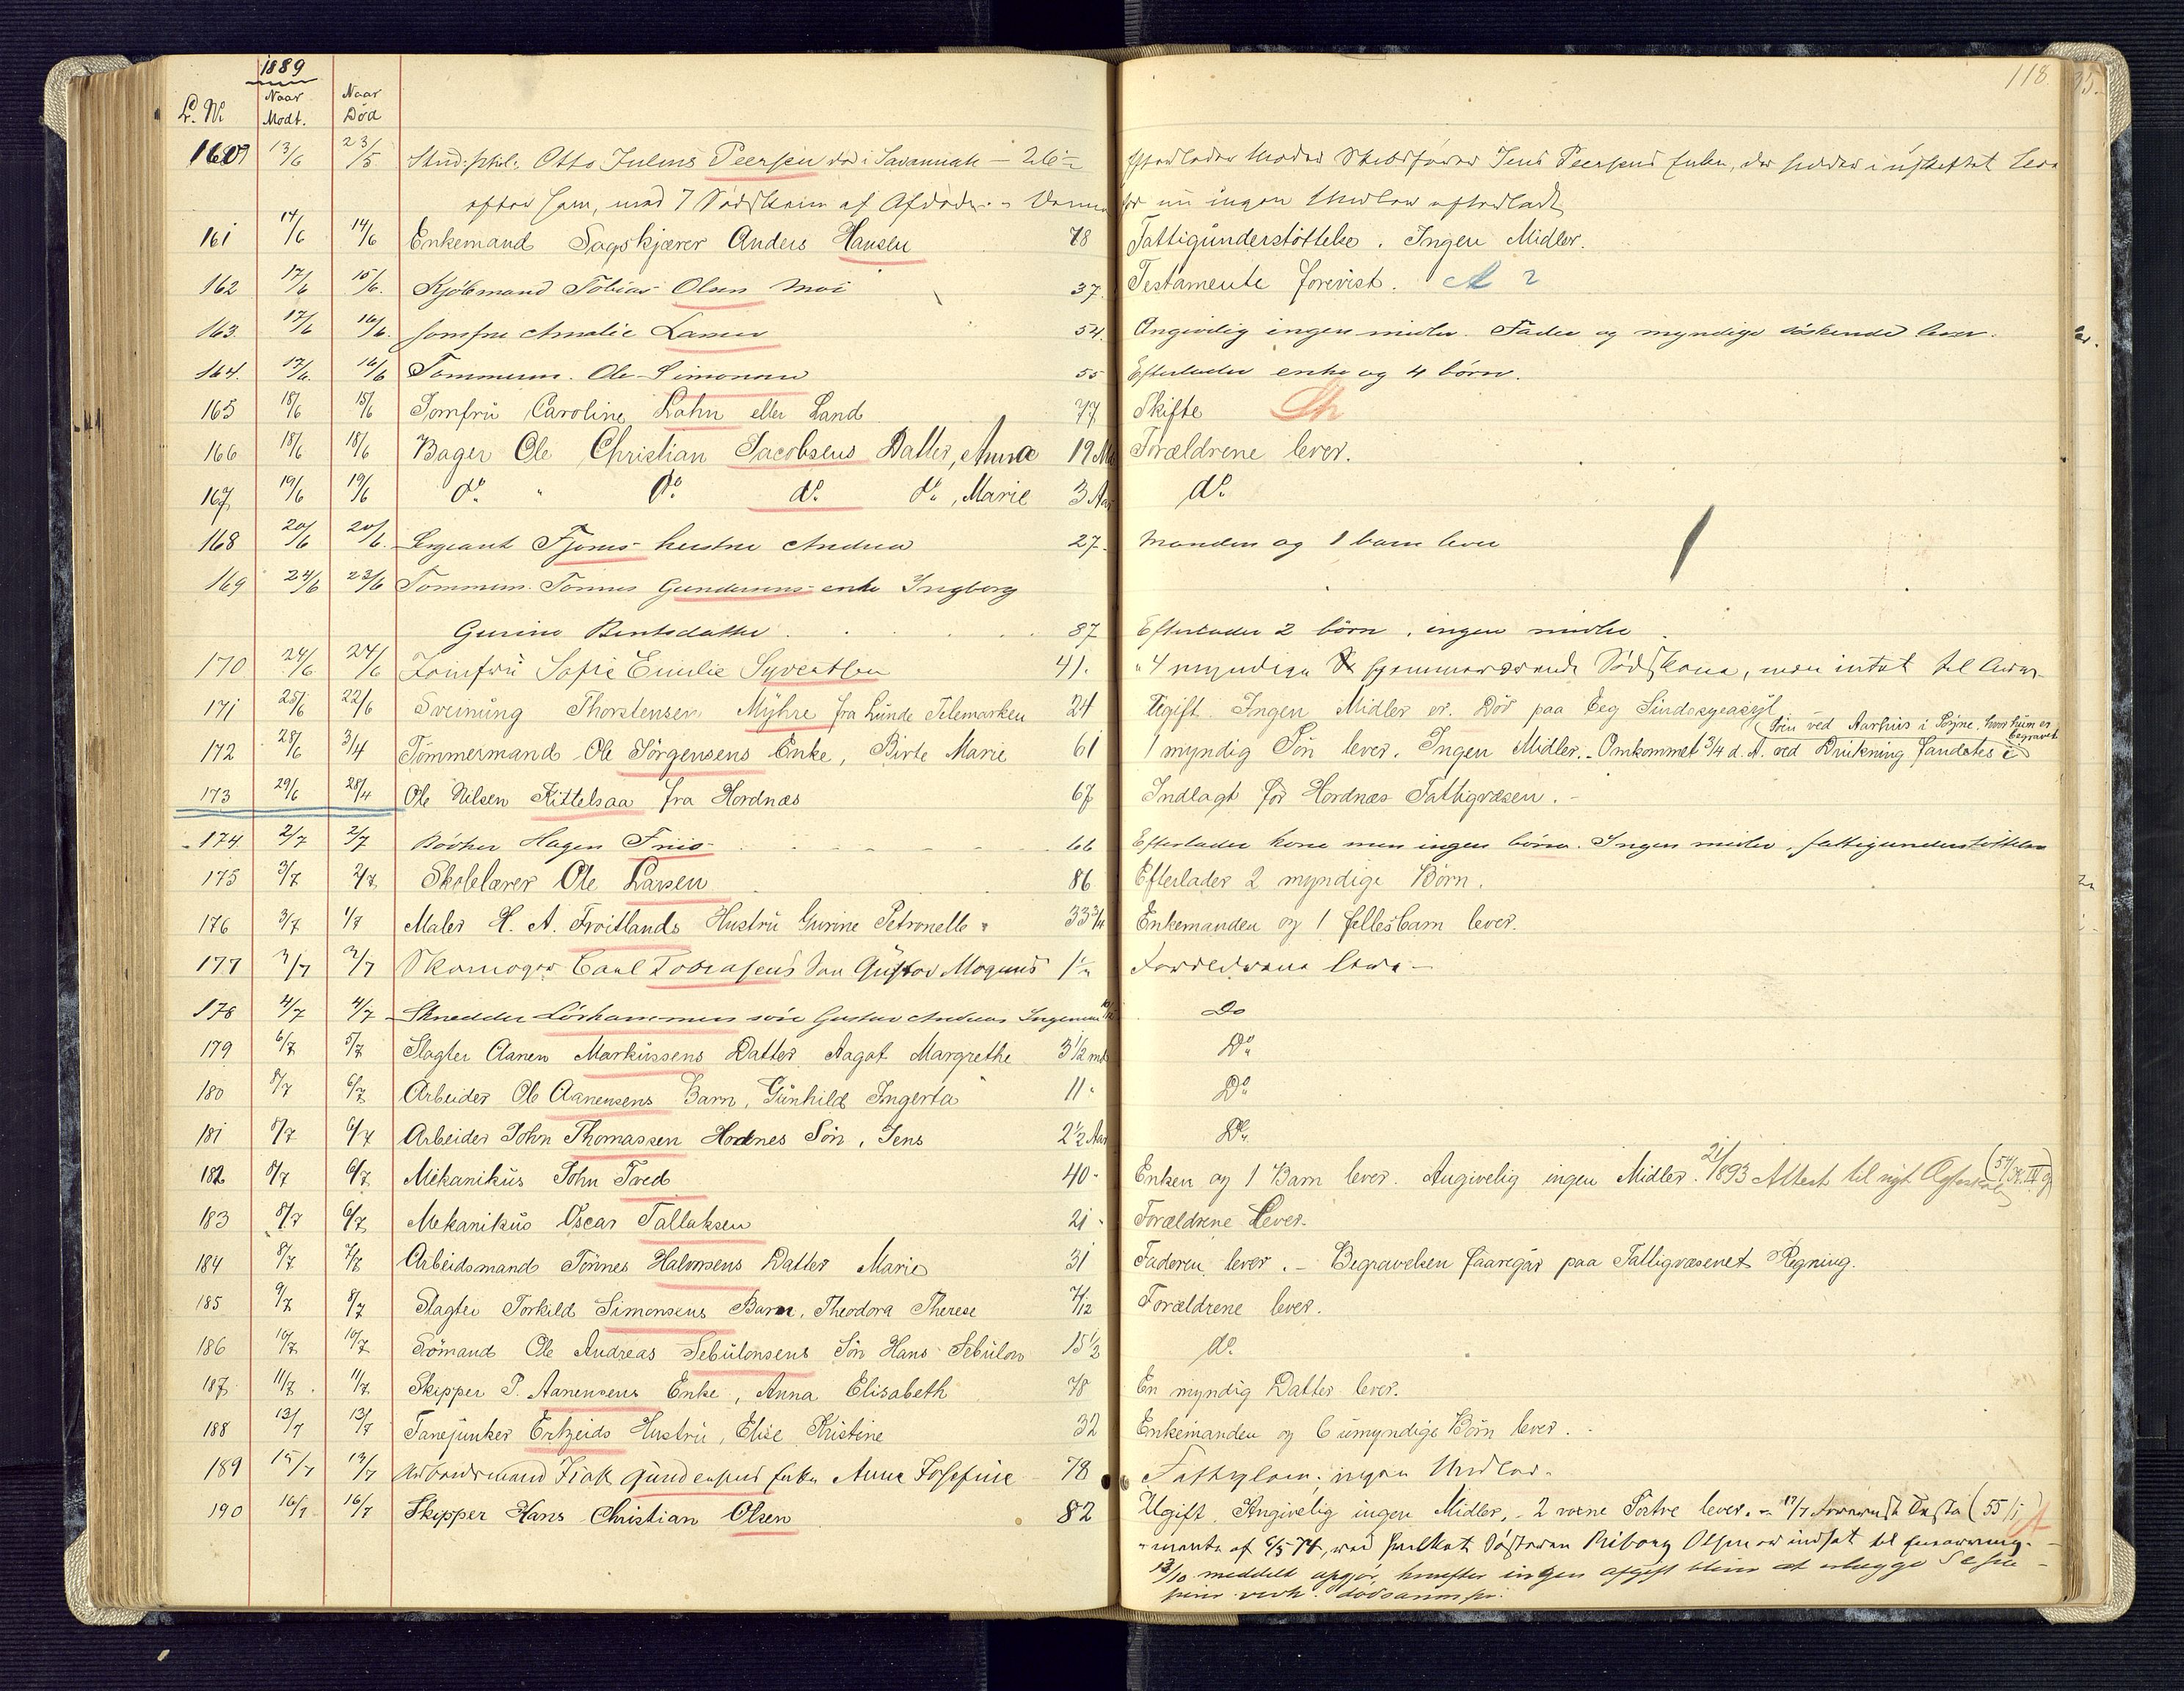 118
1889
L. No Naar Modt. Naar Død
160 13/6 23/5 Stud. phil. Otto Julius Peersen død i Savannah – 26 – Efterlader Moder Skibsfører Jens Peersens Enke, der sidder i uskiftet
efter ham, med 7 Sødskein af Afdøde. – ingen Midler efterladt
161 14/6 14/6 Enkemand Sagskjærer Anders Hansen 78 Fattigunderstøttelse. Ingen Midler.
162 17/6 15/6. Kjøbmand Tobias Olsen Moi 37. Testamente forevist.
163. 17/6 16/6. Jomfru Amalie Larsen 54. Angivelig ingen midler. Fader og myndige søskende lever.
164. 17/6. 16/6 Tømmerm. Ole Simonsen 55 Efterlader enke og 4 børn.
165 18/6 15/6 Jomfru Caroline Lahn eller Land 77 Skifte
166 18/6 18/6 Bager Ole Christian Jacobsens Datter, Anna 19 Forældrene lever.
167 19/6 19/6 do. " do. do. do., Marie 3 Aar do.
168 20/6 20/6. Sergeant Fjones hustru Andrea 27. Manden og 1 barn lever
169 24/6 23/6 Tømmerm. Tønnes Gundersens enke Ingborg
Gurine Berntsdatter 87 Efterlader 2 børn, ingen midler.
170 24/6 24/6 Jomfru Sofie Emilie Syvertsen 41. " 4 myndige hjemmeværende Sødskene, men intet til
171 25/6 22/6 Sveinung Thorstensen Myhre fra Lunde Telemarken 24 Ugift. Ingen Midler er. Død paa Eeg Sindsygeasyl
172 28/6 3/4 Tømmermand Ole Jörgensens Enke, Birte Marie 61 1 myndig Søn lever. Ingen Midler. – Omkommet 3/4 d. A. ved Drukning fandtes i
ved Aarhus i hvor hun er begravet
173 29/6 28/4 Ole Nilsen Kittelsaa fra Hordnæs 67 Indlagt for Hordnæs Fattigvæsen. –
174 2/7 2/7 Bødker Hagen Friis 66 Efterlader kone men ingen børn. Ingen midler, fattigunderstøttelse
175 3/7 2/7 Skolelærer Ole Larsen 86 Efterlader 2 myndige Børn.
176 3/7 1/7 Maler H. A. Froitlands Hustru Gurine Petronelle " 33 3/4 Enkemanden og 1 fellesbarn lever.
177 3/7 2/7 Skomager Carl Tobiasens Søn Gustav Magnus Forældrene lever –
178 4/7 4/7 Skrædder søn Gustav Andreas Do
179 6/7 5/7 Slagter Aanen Markussens Datter Aagot Margrethe 3 1/2 md Do
180 8/7 6/7 Arbeider Ole Aanensens Barn, Gunhild Ingerta 11 " Do
181 8/7 6/7 Arbeider John Thomassen Hodnes Søn, Jens 2 1/2 Aar Do.
182 8/7 6/7 Mekanikus John Tved 40 " Enken og 1 Barn lever. Angivelig ingen Midler. 2/1 1893 Attest til nyt Ægteskab
183 8/7 6/7 Mekanikus Oscar Tallaksen 21 " Forældrene Lever.
184 8/7 7/7 Arbeidsmand Tönnes Halvorsens Datter Marie 31 Faderen lever. – Begravelsen faaregår paa Fattigvæsenet Regning.
185 9/7 8/7 Slagter Torkild Simonsens Barn, Theodora Therese 7/12 Forældrene lever.
186 10/7 10/7 Sømand Ole Andreas Sebulonsens Søn Hans Sebulon 15 1/2 do.
187 11/7. 11/7. Skipper P. Aanensens Enke, Anna Elisabeth 78 En myndig Datter lever.
188 13/7 13/7 Fanejunker Ertzeids Hustru, Elise Kristine 32 Enkemanden og 6 umyndige Børn lever.
189 15/7 13/7 Arbeidsmand Isak Gundersens Enke Anne Josefine 78 Fattiglem; ingen Midler.
190 16/7 16/7 Skipper Hans Christian Olsen 82 Ugift. Angivelig ingen Midler. – 2 voxne Søstre lever. – 17/7 forevist Testa (55/
" mente af 6/5 74, ved hvilket Søsteren Olsen er indsat til
13/10 meddelt opgjør, hvorefter ingen afgift bliver at erlægge